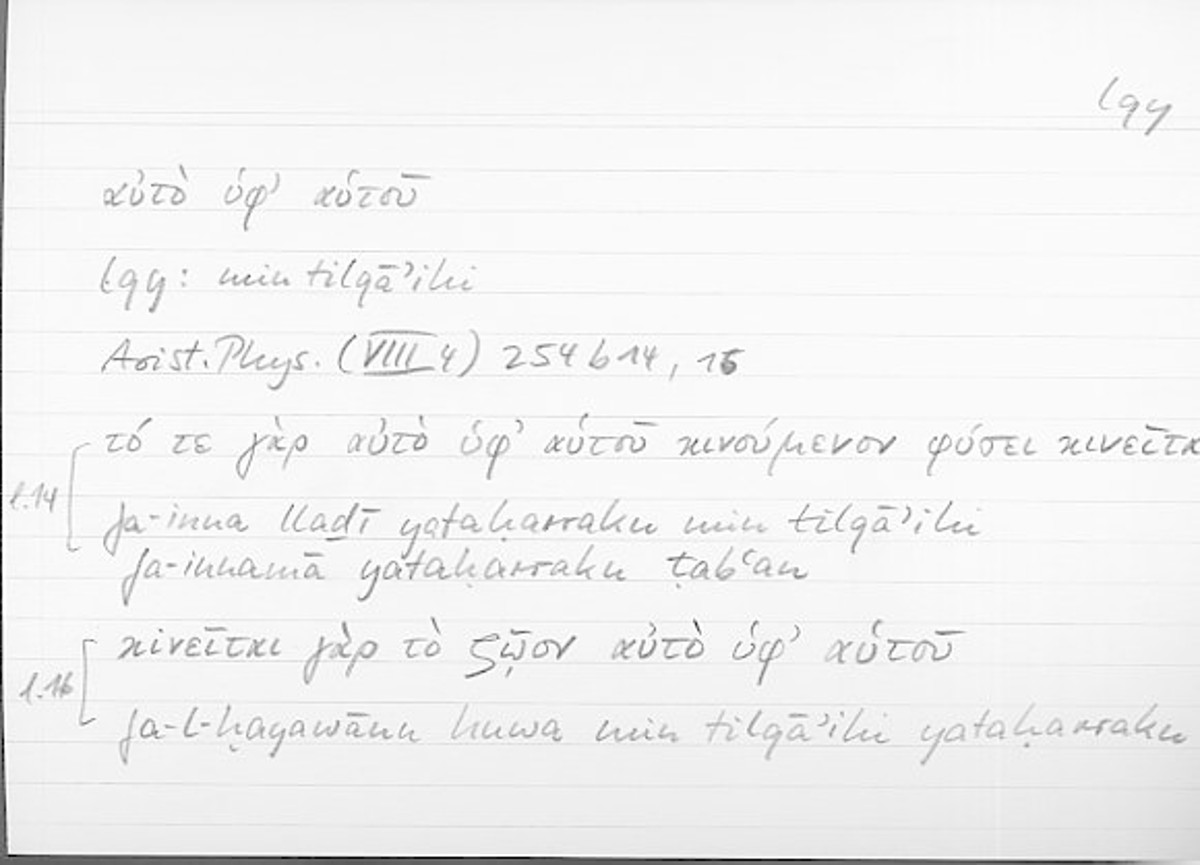 lqy
αὐτὸ ὑφ’ αὑτοῦ
lqy: min tilqāʾihi
Arist. Phys. (VIII 4) 254 b 14, 16
τό τε γὰρ αὐτὸ ὑφ’ αὑτοῦ κινούμενον φύσει κινεῖτα
l.14
fa-inna llaḏī yataḥarraku min tilqāʾihi
fa-innamā yataḥarraku ṭabʿan
κινεῖται γὰρ τὸ ζῷον αὐτὸ ὑφ’ αὑτοῦ
l.16
fa-l-ḥayawānu huwa min tilqāʾihi yataḥarraku